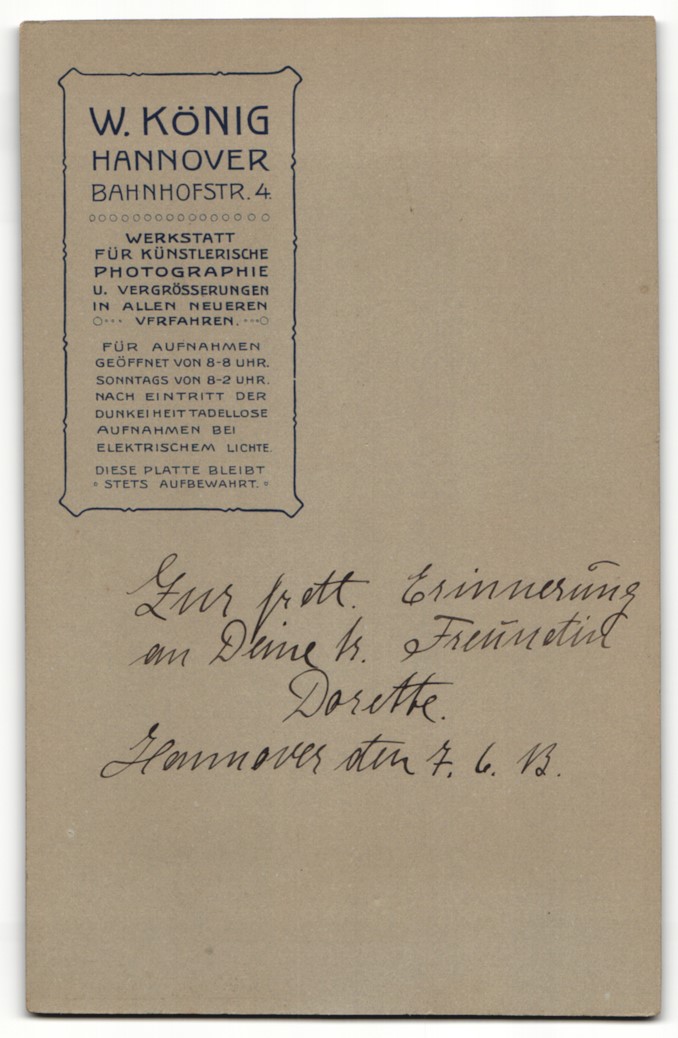 W. KÖNIG
HANNOVER
BAHNHOFSTR. 4.
WERKSTATT
FÜR KÜNSTLERISCHE
PHOTOGRAPHIE
U. VERGRÖSSERUNGEN
IN ALLEN NEUEREN
VFRFAHREN.
FÜR AUFNAHMEN
GEÖFFNET VON 8-8 UHR.
SONNTAGS VON 8-2 UHR.
NACH EINTRITT DER
DUNKEIHEIT TADELLOSE
AUFNAHMEN BEI
ELEKTRISCHEM LICHTE.
DIESE PLATTE BLEIBT
STETS AUFBEWAHRT.
Zur frdl. Erinnerung
an Deine tr. Freundin
Dorette.
Hannover den 7. 6. 13.